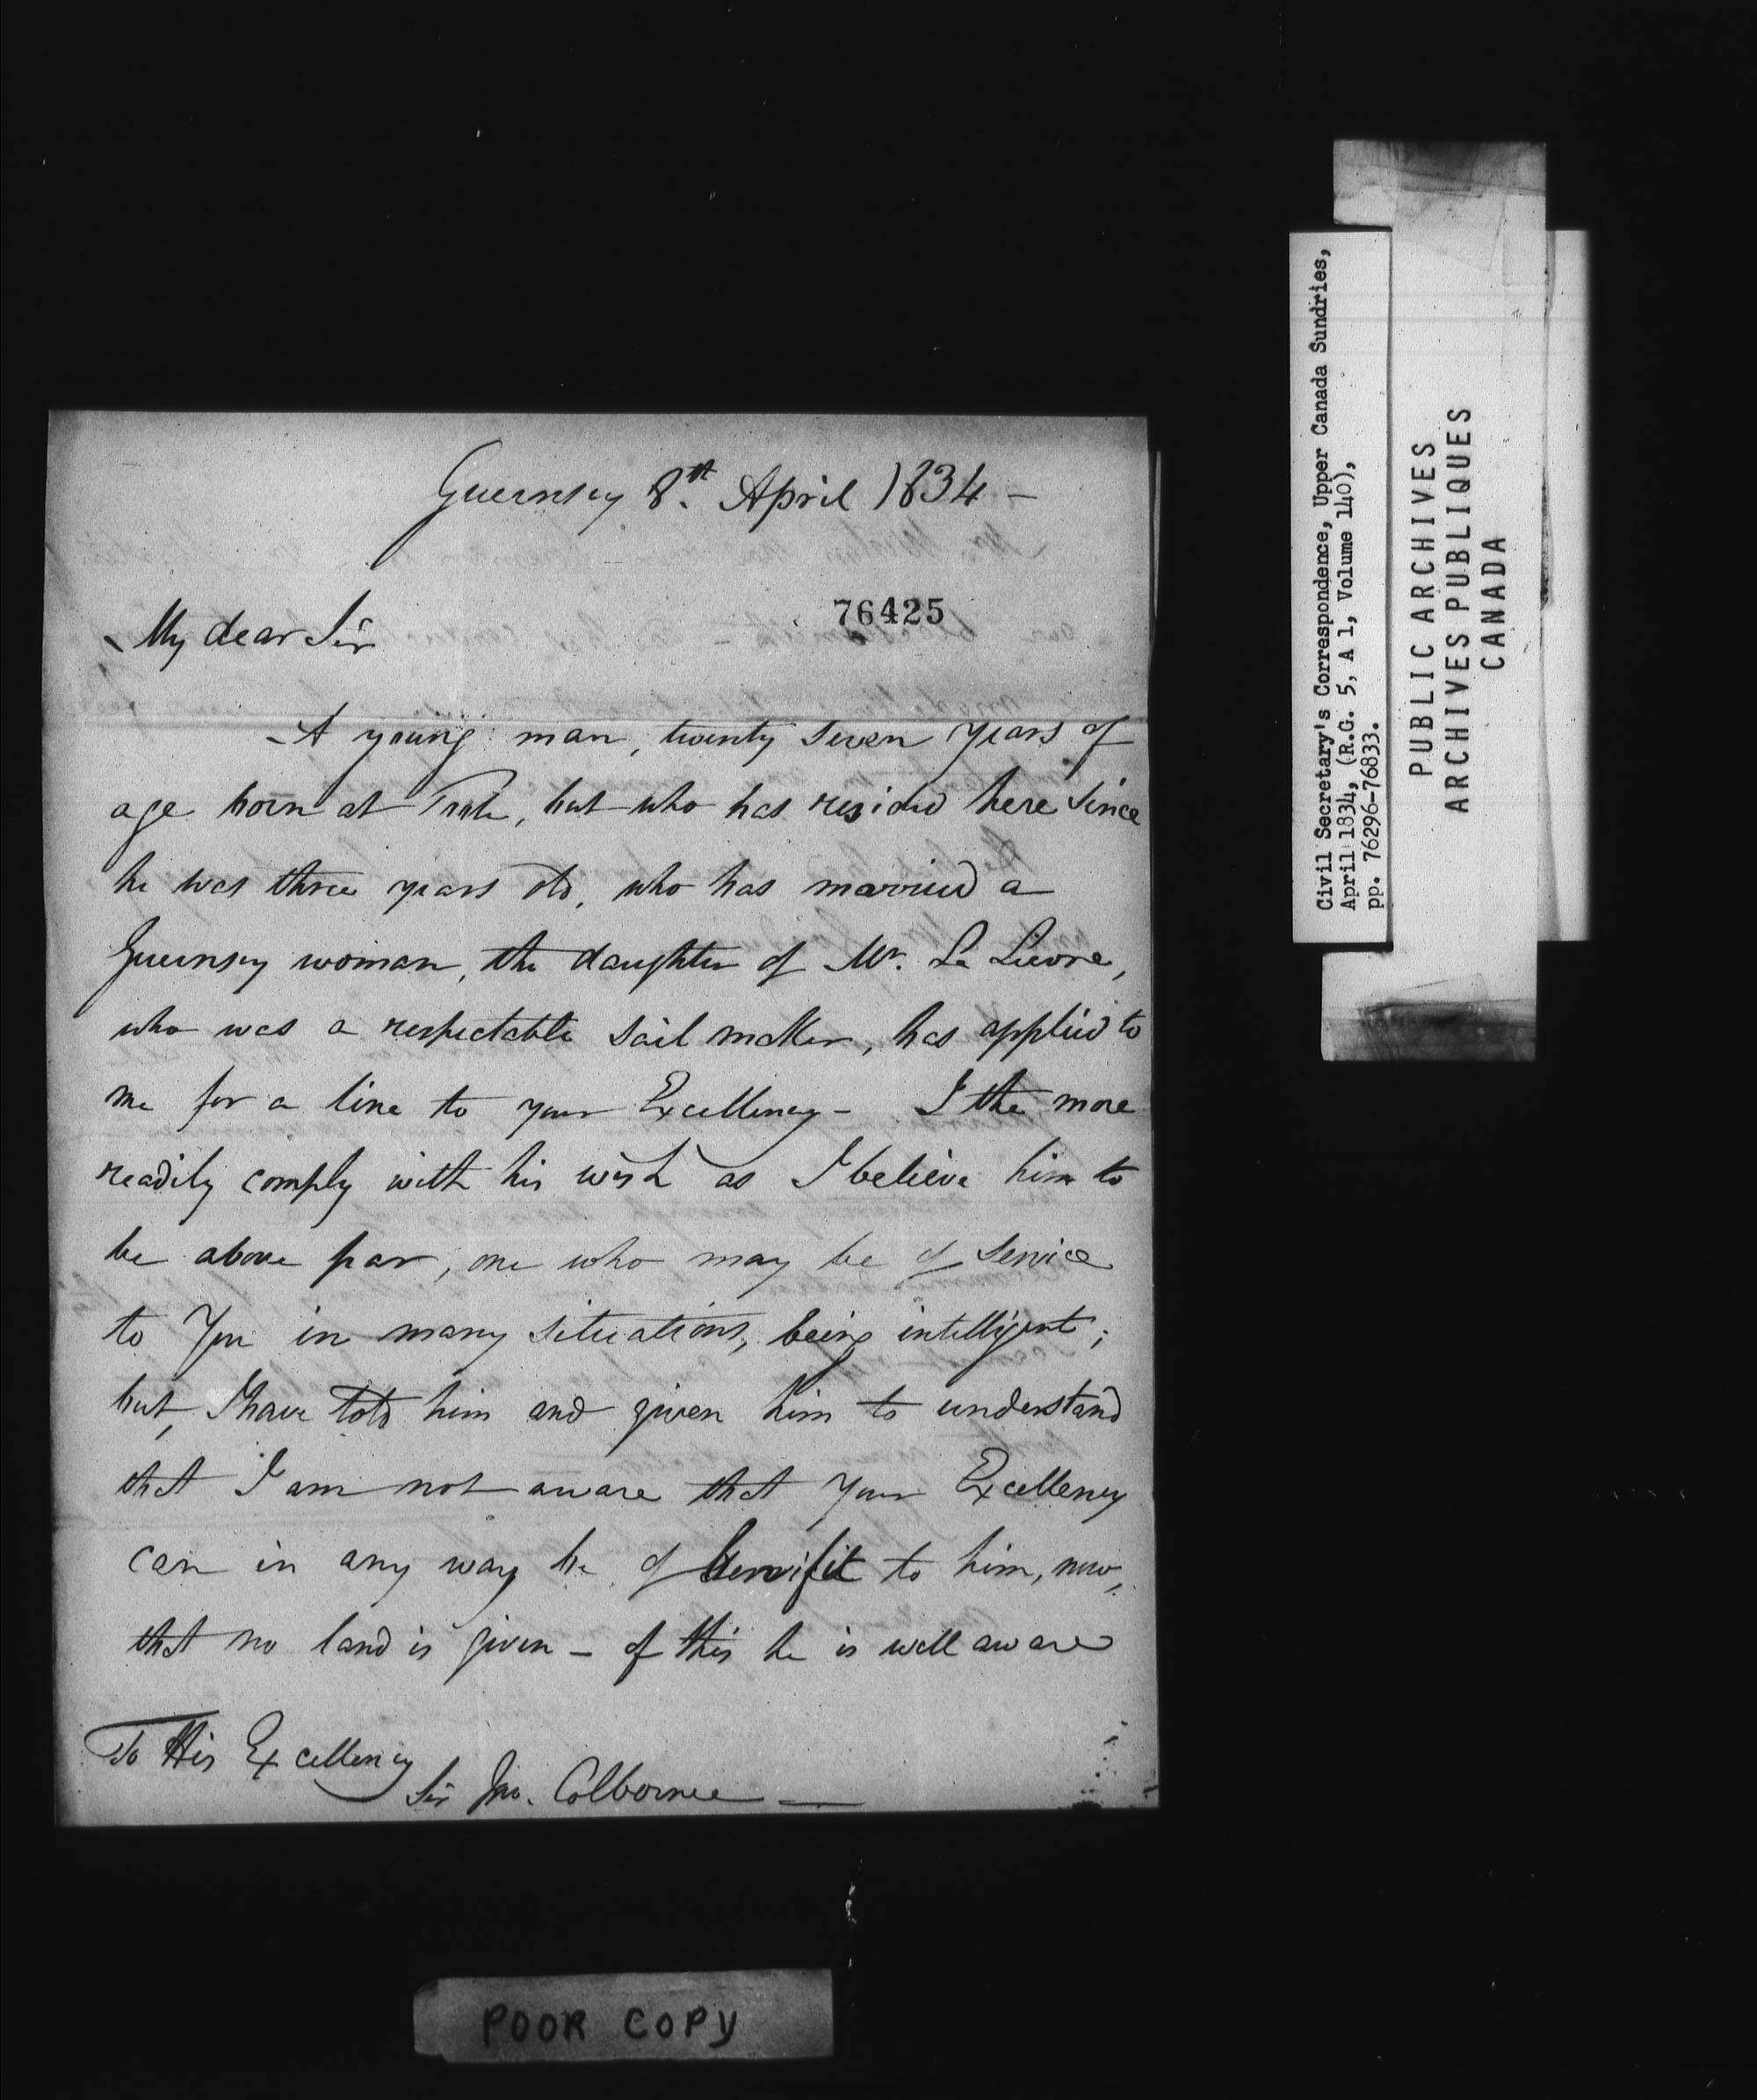 Guernsey 8th April 1834 —
76425
My dear Sir
A young man, twenty seven years of
age born at, but who has resided here since
he was three years old, who has married a
Guernsey woman, the daughter of Mr. Le
who was a respectable sail maker, has applied to
me for a line to your Excellency — I the more
readily comply with his wish as I believe him to
be above par, one who may be of service
to you in many situations, being intelligent;
but, I have told him and given him to understand
that I am not aware that your Excellency
can in any way be of benifit to him, now,
that no land is given — of this he is well aware
To His Excellency
Sir Jno. Colborne —
Civil Secretary's Correspondence, Upper Canada Sundries,
April 1834, (R.G. 5, A 1, Volume 140),
pp. 76296-76833.
PUBLIC ARCHIVES
ARCHIVES PUBLIQUES
CANADA
POOR COPY